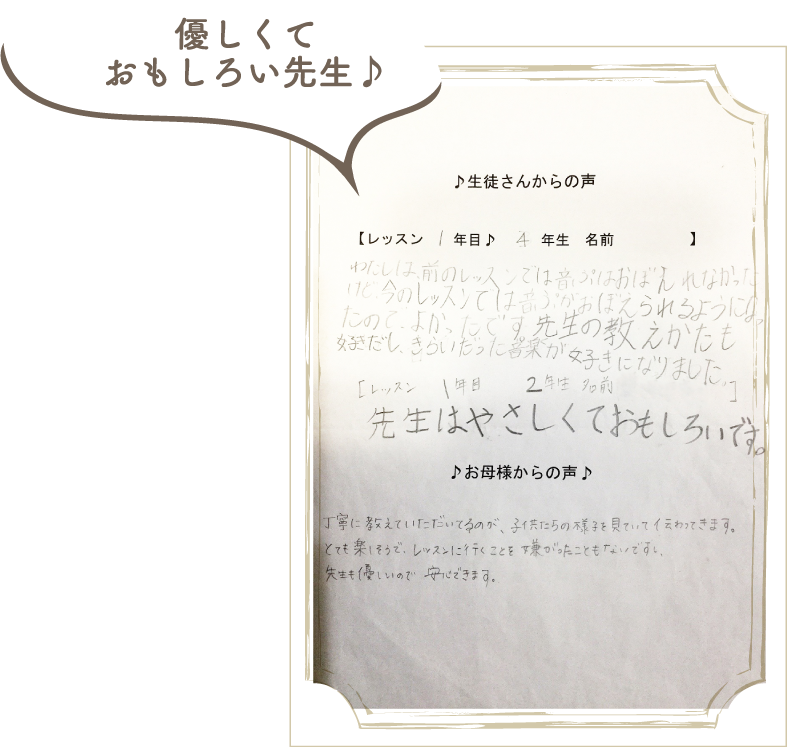 優しくて
おもしろい先生♪
♪生徒さんからの声
【レッスン 1 年目♪ 4 年生 名前 】
わたしは、前のレッスンでは音ぷはおぼえれなかった
けど、今のレッスンでは音ぷがおぼえられるようになっ
たので、よかったです。先生の教えかたも
好きだし、きらいだった音楽が好きになりました。
[レッスン 1年目 2年生 名前 ]
先生はやさしくておもしろいです。
♪お母様からの声♪
丁寧に教えていただいてるのが、子供たちの様子を見ていて伝わってきます。
とても楽しそうで、レッスンに行くことを嫌がったこともないですし、
先生も優しいので安心できます。